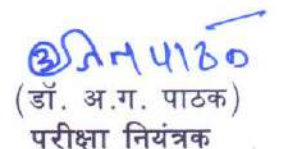 (डॉ. अ.ग. पाठक)
परीक्षा नियंत्रक